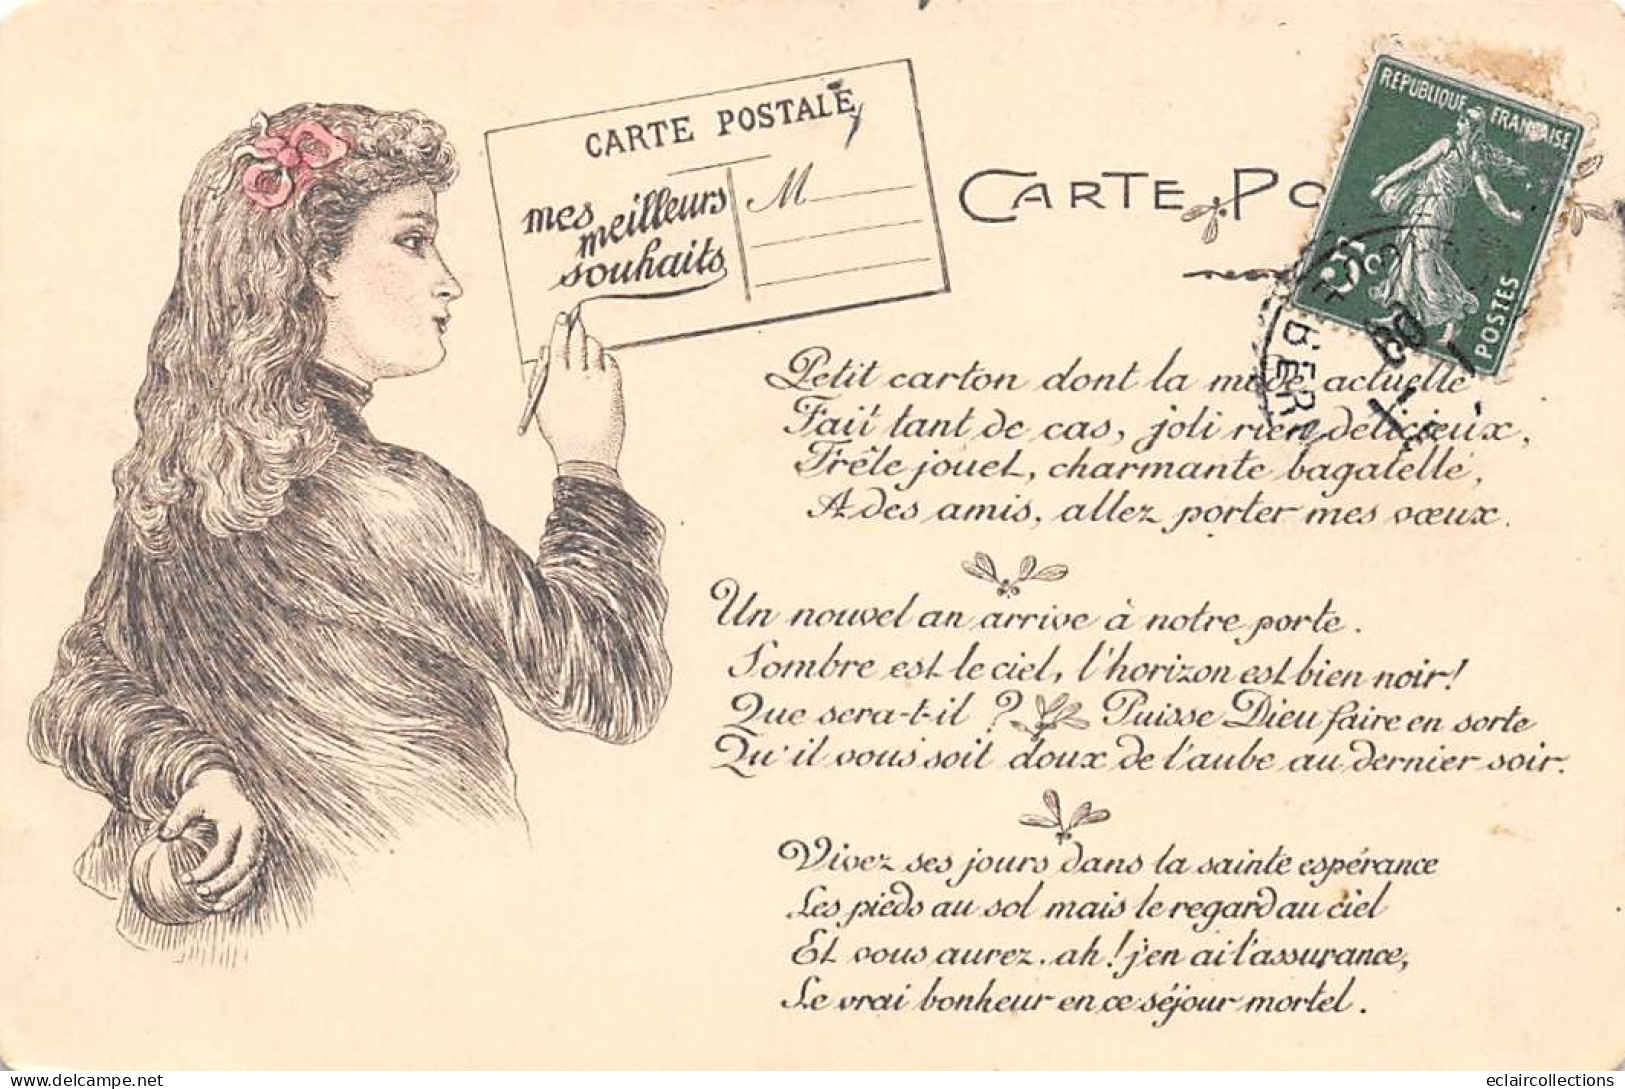 CARTE POSTALE
mes
meilleurs
souhaits
M
CARTE PO
REPUBLIQUE FRANÇAISE
5c
POSTES
09
Petit carton dont la mode actuelle
Fait tant de cas, joli rien delicieux,
Frêle jouet, charmante bagatelle,
A des amis, allez porter mes vœux.
Un nouvel an arrive à notre porte.
Sombre est le ciel, l'horizon est bien noir!
Que sera-t-il? Puisse Dieu faire en sorte
Qu'il vous soit doux de l'aube au dernier soir.
Vivez ses jours dans la sainte espérance
Les pieds au sol mais le regard au ciel
Et vous aurez. ah! j'en ai l'assurance,
Le vrai bonheur en ce séjour mortel.
eclaircollections